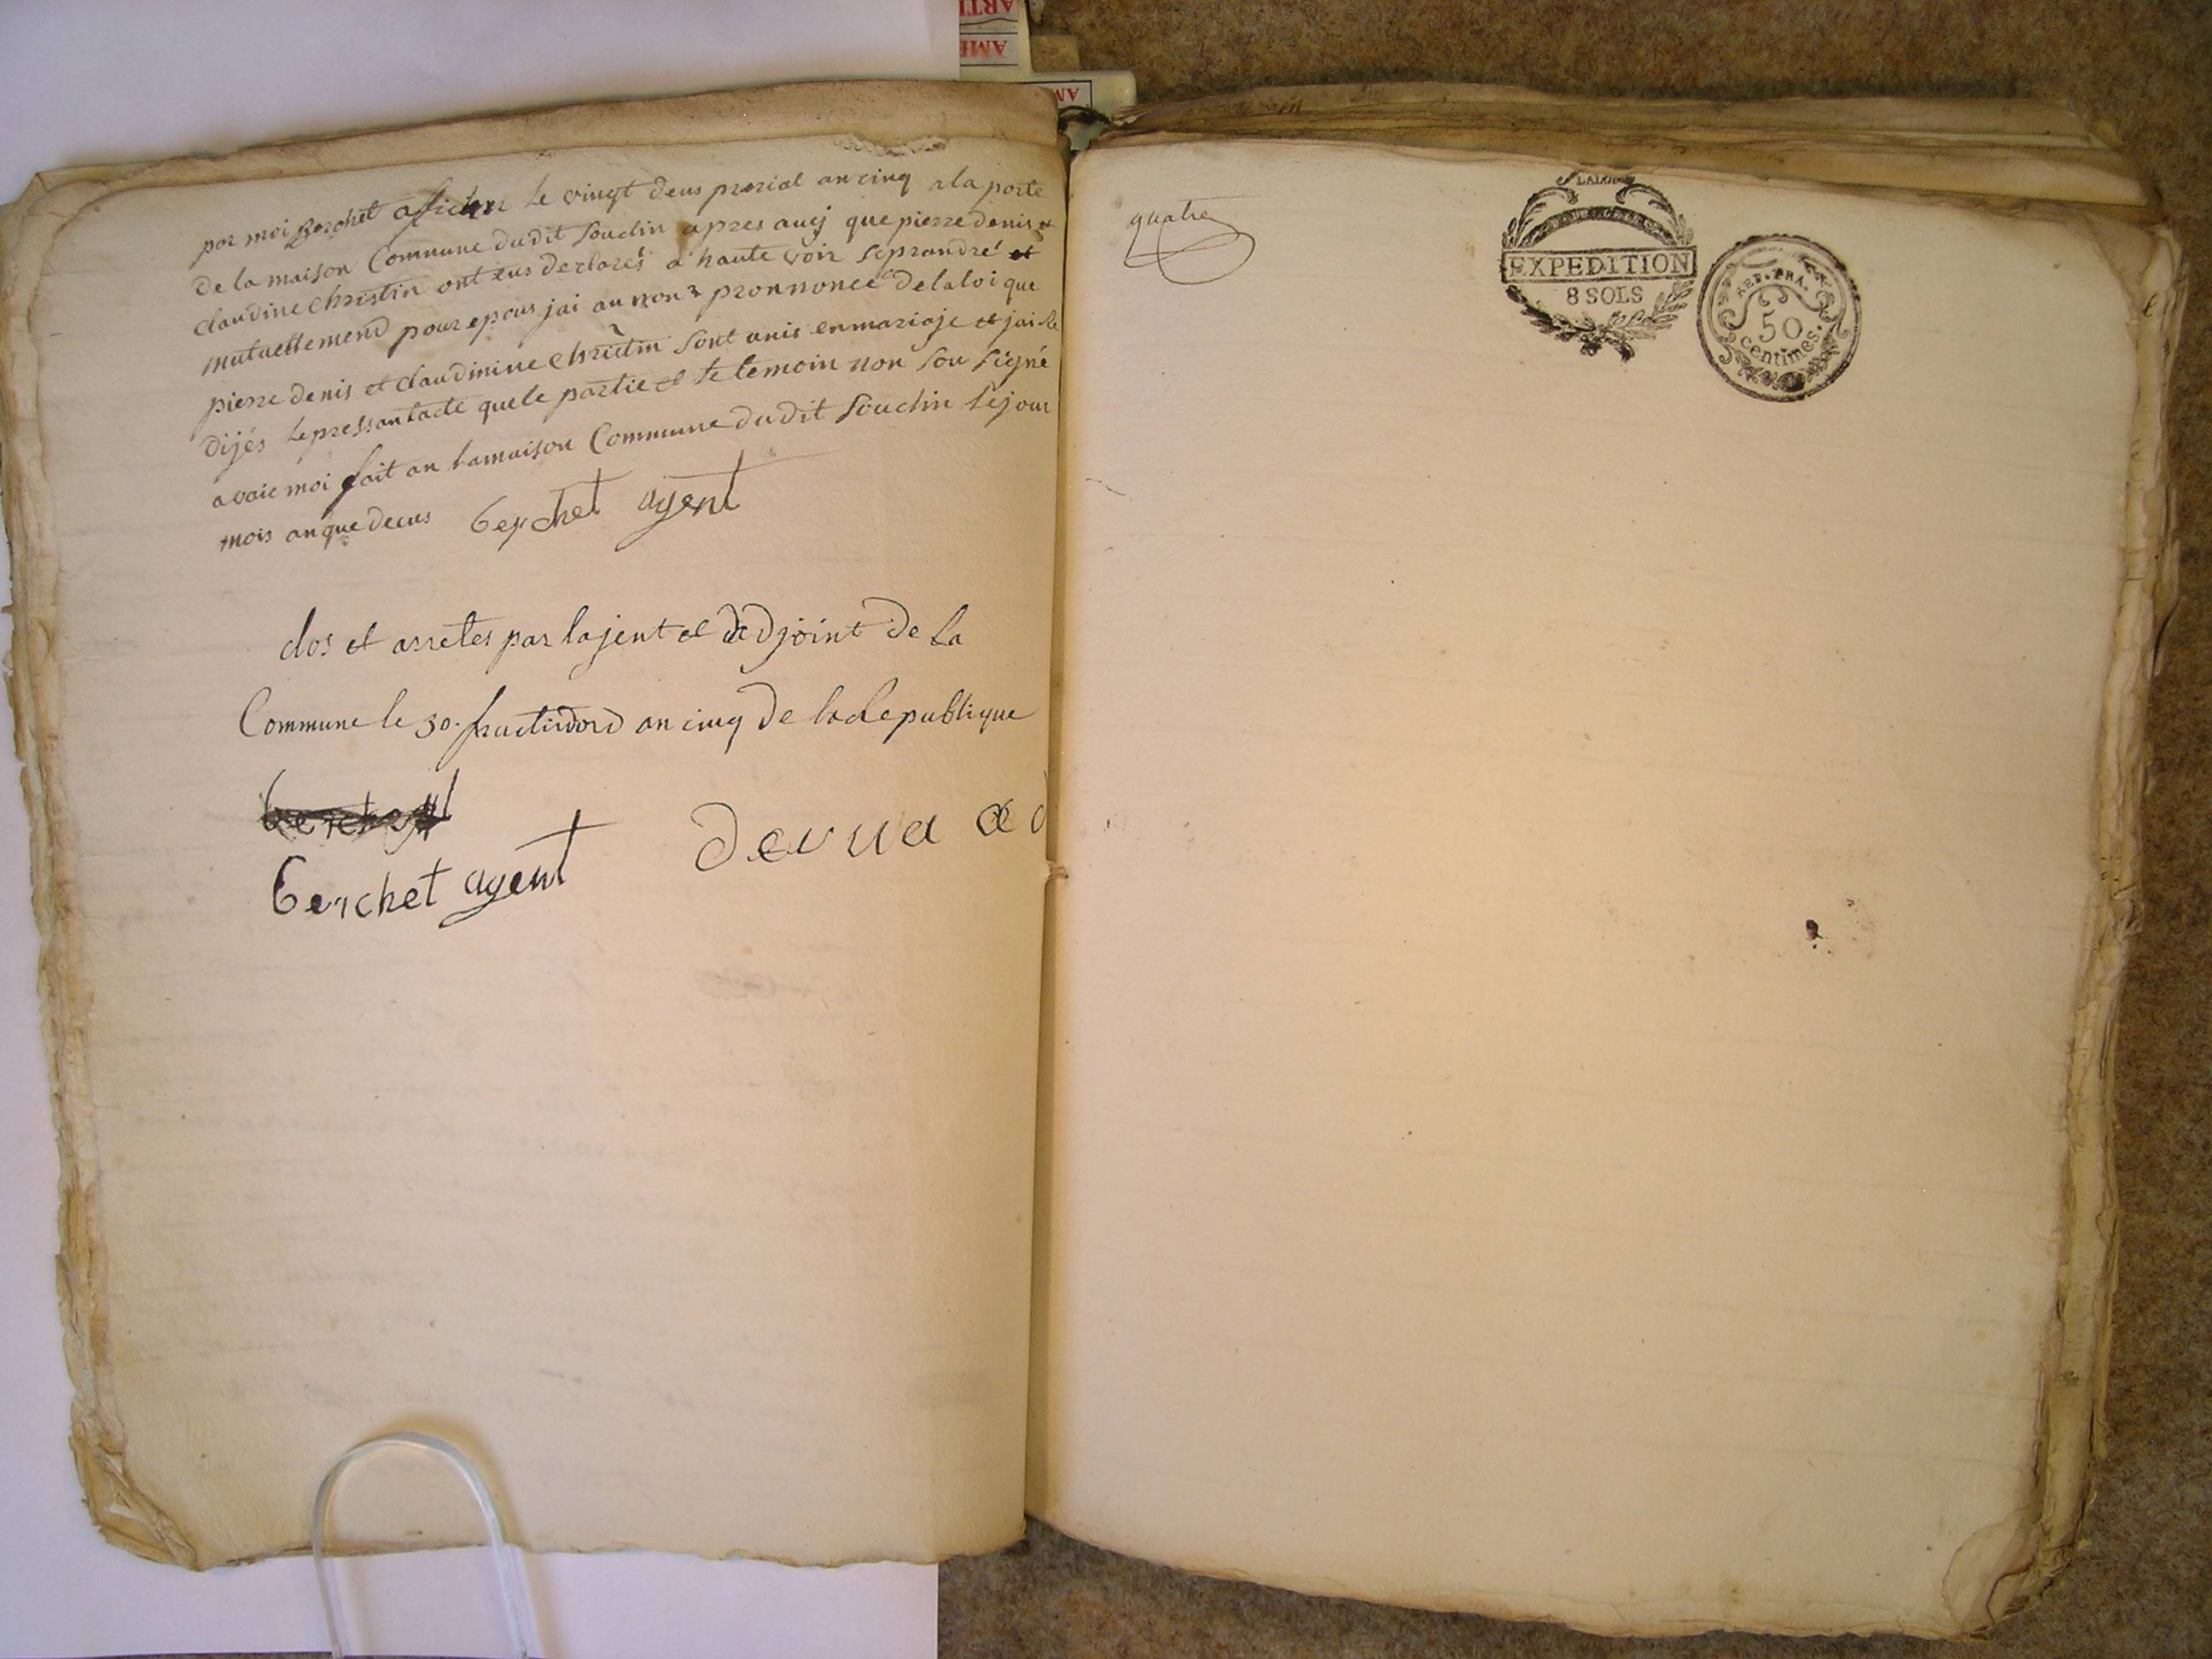 par moi Berchet aficher le vingt deus prerial an cinq a la porte
de la maison Commune dudit Souclin apres auoj que pierre denis et
claudine christin ont eus declarés a haute voir se prandre et
mutuellemend pour epous jai au non prononcé de la loi que
pierre denis et claudinine christin sont unis en mariaje et jai re
dijés le pressant acte que le partie et le temoin non sou signé
avaic moi fait an la maison Commune dudit Souclin le jour
mois an que decus Berchet agent
clos et arretes par lajent et adjoint de la
Commune le 30. fructidord an cinq de la Republique
Berchet
Berchet agent
quatre
EXPEDITION
8 SOLS
REP. FRA.
50
centimes.
AMI